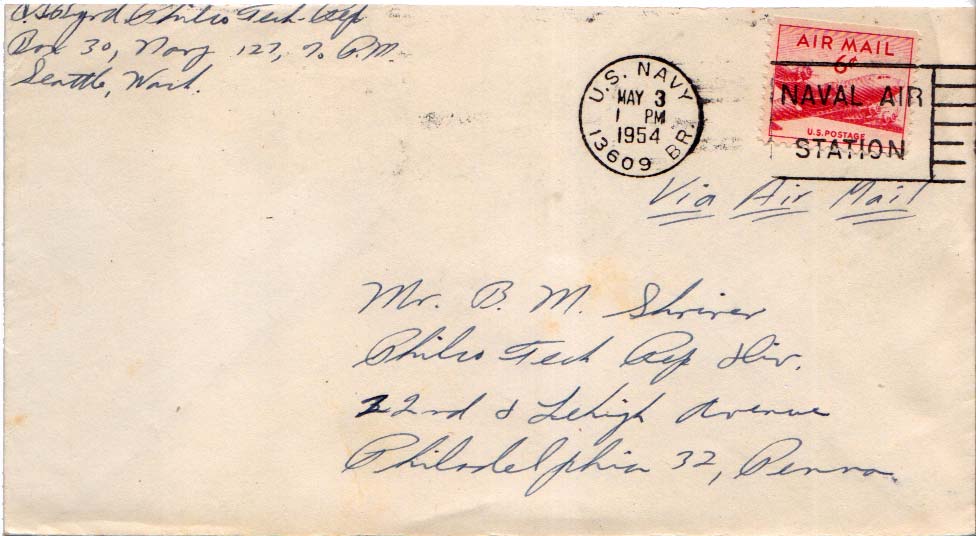 Byrd Philco Tech Rep
Box 30, Navy 127, % P.M.
Seattle, Wash.
U.S. NAVY
MAY 3
1 PM
1954
13609 BR.
AIR MAIL
6¢
NAVAL AIR
U.S. POSTAGE
STATION
Via Air Mail
Mr. B. M. Shriver
Philco Tech Rep Div.
22nd & Lehigh Avenue
Philadelphia 32, Penna